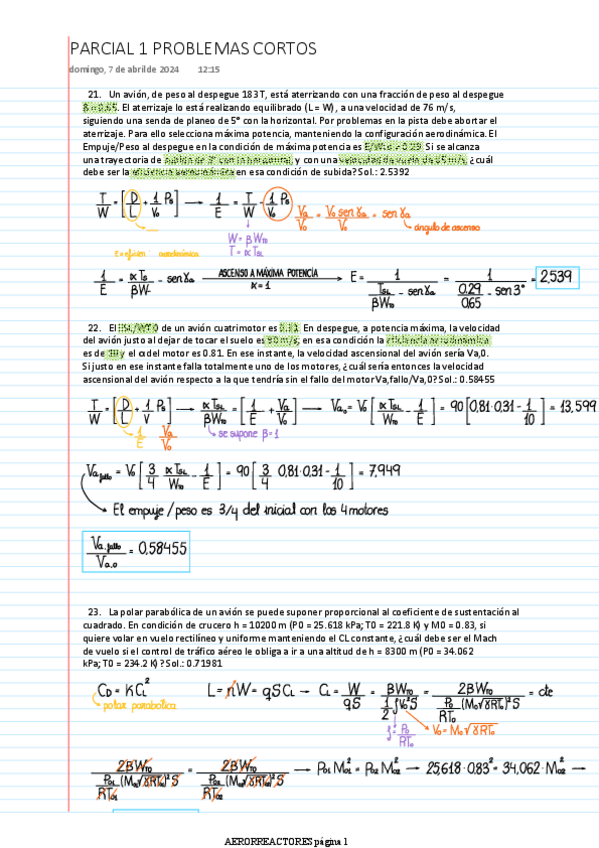 PARCIAL 1 PROBLEMAS CORTOS
domingo, 7 de abril de 2024 12:15
21. Un avión, de peso al despegue 183T, está aterrizando con una fracción de peso al despegue
β = 0.65. El aterrizaje lo está realizando equilibrado (L = W) , a una velocidad de 76 m/s,
siguiendo una senda de planeo de 5° con la horizontal. Por problemas en la pista debe abortar el
aterrizaje. Para ello selecciona máxima potencia, manteniendo la configuración aerodinámica. El
Empuje/Peso al despegue en la condición de máxima potencia es E/Wto = 0.29. Si se alcanza
una trayectoria de subida de 3° con la horizontal, y con una velocidad de vuelo de 85 m/s, ¿cuál
debe ser la eficiencia aerodinámica en esa condición de subida? Sol.: 2.5392
T/W = [D/L + 1/V₀ Ps] → 1/E = T/W - 1/V₀ Ps   Va/V₀ = V₀ sen γa/V₀ = sen γa
ángulo de ascenso
W = βW_TO
T = αT_SL
E = eficien. aerodinámica
1/E = αTs/βW - senγa   ASCENSO A MÁXIMA POTENCIA α = 1 → E = 1/(T_SL/βW_TO - senγa) = 1/(0.29/0.65 - sen3°) = 2,539
22. El TSL/WTO de un avión cuatrimotor es 0.31. En despegue, a potencia máxima, la velocidad
del avión justo al dejar de tocar el suelo es 90 m/s, en esa condición la eficiencia aerodinámica
es de 10 y el α del motor es 0.81. En ese instante, la velocidad ascensional del avión sería Va,0.
Si justo en ese instante falla totalmente uno de los motores, ¿cuál sería entonces la velocidad
ascensional del avión respecto a la que tendría sin el fallo del motor Va,fallo/Va,0? Sol.: 0.58455
T/W = [D/L + 1/V Ps] → αT_SL/βW_TO = [1/E + Va/V₀] → Va,₀ = V₀[αT_SL/W_TO - 1/E] = 90[0,81·0,31 - 1/10] = 13,599
1/E   Va/V₀   → se supone β=1
Va,fallo = V₀[3/4 αT_SL/W_TO - 1/E] = 90[3/4 0,81·0,31 - 1/10] = 7,949
→ El empuje/peso es 3/4 del inicial con los 4 motores
Va,fallo/Va,₀ = 0,58455
23. La polar parabólica de un avión se puede suponer proporcional al coeficiente de sustentación al
cuadrado. En condición de crucero h = 10200 m (P0 = 25.618 kPa; T0 = 221.8 K) y M0 = 0.83, si
quiere volar en vuelo rectilíneo y uniforme manteniendo el CL constante, ¿cuál debe ser el Mach
de vuelo si el control de tráfico aéreo le obliga a ir a una altitud de h = 8300 m (P0 = 34.062
kPa; T0 = 234.2 K) ? Sol.: 0.71981
C_D = KC_L²   L = nW = qSC_L → C_L = W/qS = βW_TO/(1/2 ρV₀²S) = 2βW_TO/(P₀/RT₀ (M₀√γRT₀)² S) = cte
polar parabólica
ρ = P₀/RT₀   V₀ = M₀√γRT₀
2βW_TO/(P₀₁/RT₀₁ (M₀₁√γRT₀)² S) = 2βW_TO/(P₀₂/RT₀₂ (M₀₂√γRT₀)² S) → P₀₁M₀₁² = P₀₂M₀₂² → 25,618·0.83² = 34,062·M₀₂² →
AERORREACTORES página 1